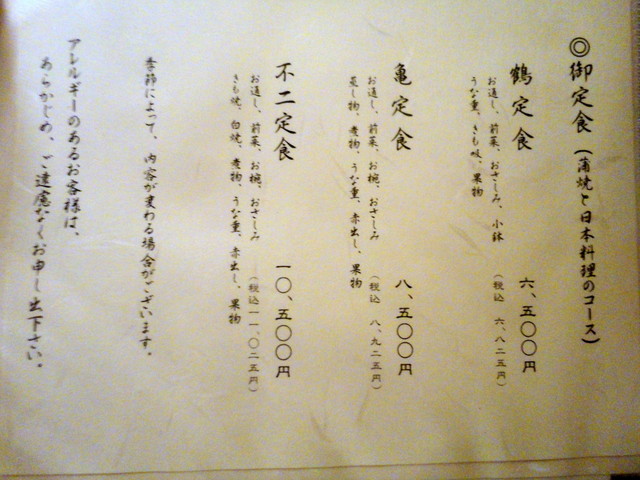 ◎御定食（蒲焼と日本料理のコース）
鶴定食　六、五〇〇円
お通し、前菜、おさしみ、小鉢
（税込　六、八二五円）
うな重、きも吸、果物
亀定食　八、五〇〇円
お通し、前菜、お椀、おさしみ
（税込　八、九二五円）
蒸し物、煮物、うな重、赤出し、果物
不二定食　一〇、五〇〇円
お通し、前菜、お椀、おさしみ
（税込一一、〇二五円）
きも焼、白焼、煮物、うな重、赤出し、果物
季節によって、内容が変わる場合がございます。
アレルギーのあるお客様は、
あらかじめ、ご遠慮なくお申し出下さい。